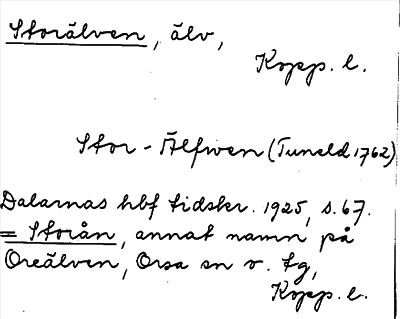 Storälven, älv,
Kopp. l.
Stor-Älfwen (Tuneld 1762)
Dalarnas hbf tidskr. 1925, s. 67.
= Storån, annat namn på
Oreälven, Orsa sn o. tg,
Kopp. l.